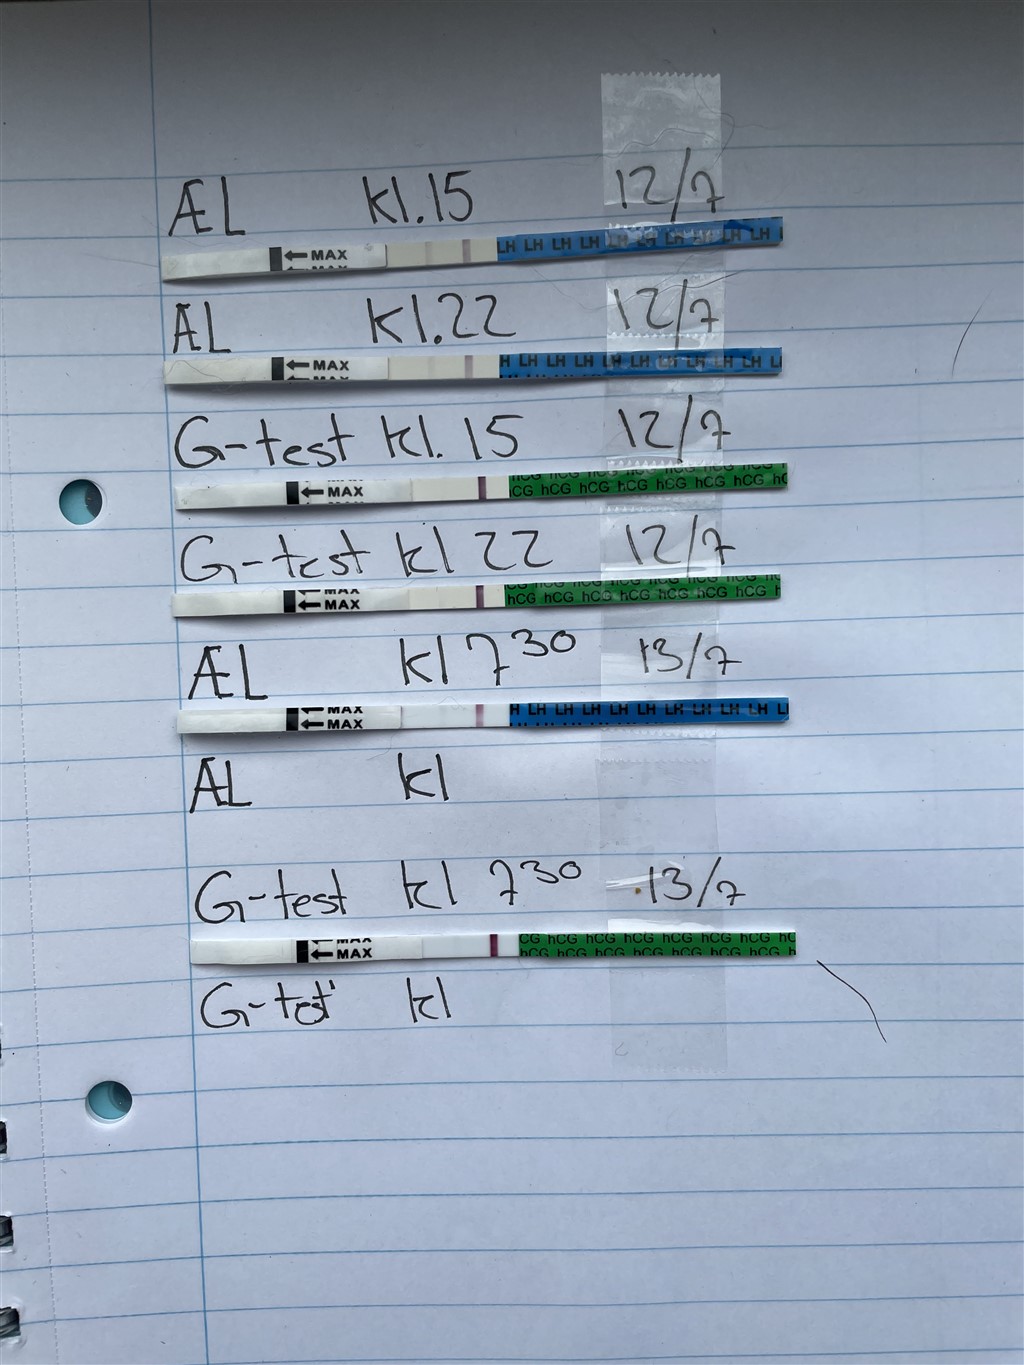 ÆL kl.15 12/7
← MAX LH LH LH LH LH LH LH LH LH LH
ÆL kl.22 12/7
← MAX H LH LH LH LH LH LH LH LH LH L
G-test kl. 15 12/7
← MAX CG hCG hCG hCG hCG hCG hCG hC
G-test kl 22 12/7
← MAX hCG hCG hCG hCG hCG hCG hCG
ÆL kl 7³⁰ 13/7
← MAX H LH LH LH LH LH LH LH LH LH L
ÆL kl
G-test kl 7³⁰ 13/7
← MAX CG hCG hCG hCG hCG hCG hCG hC
G-tet kl